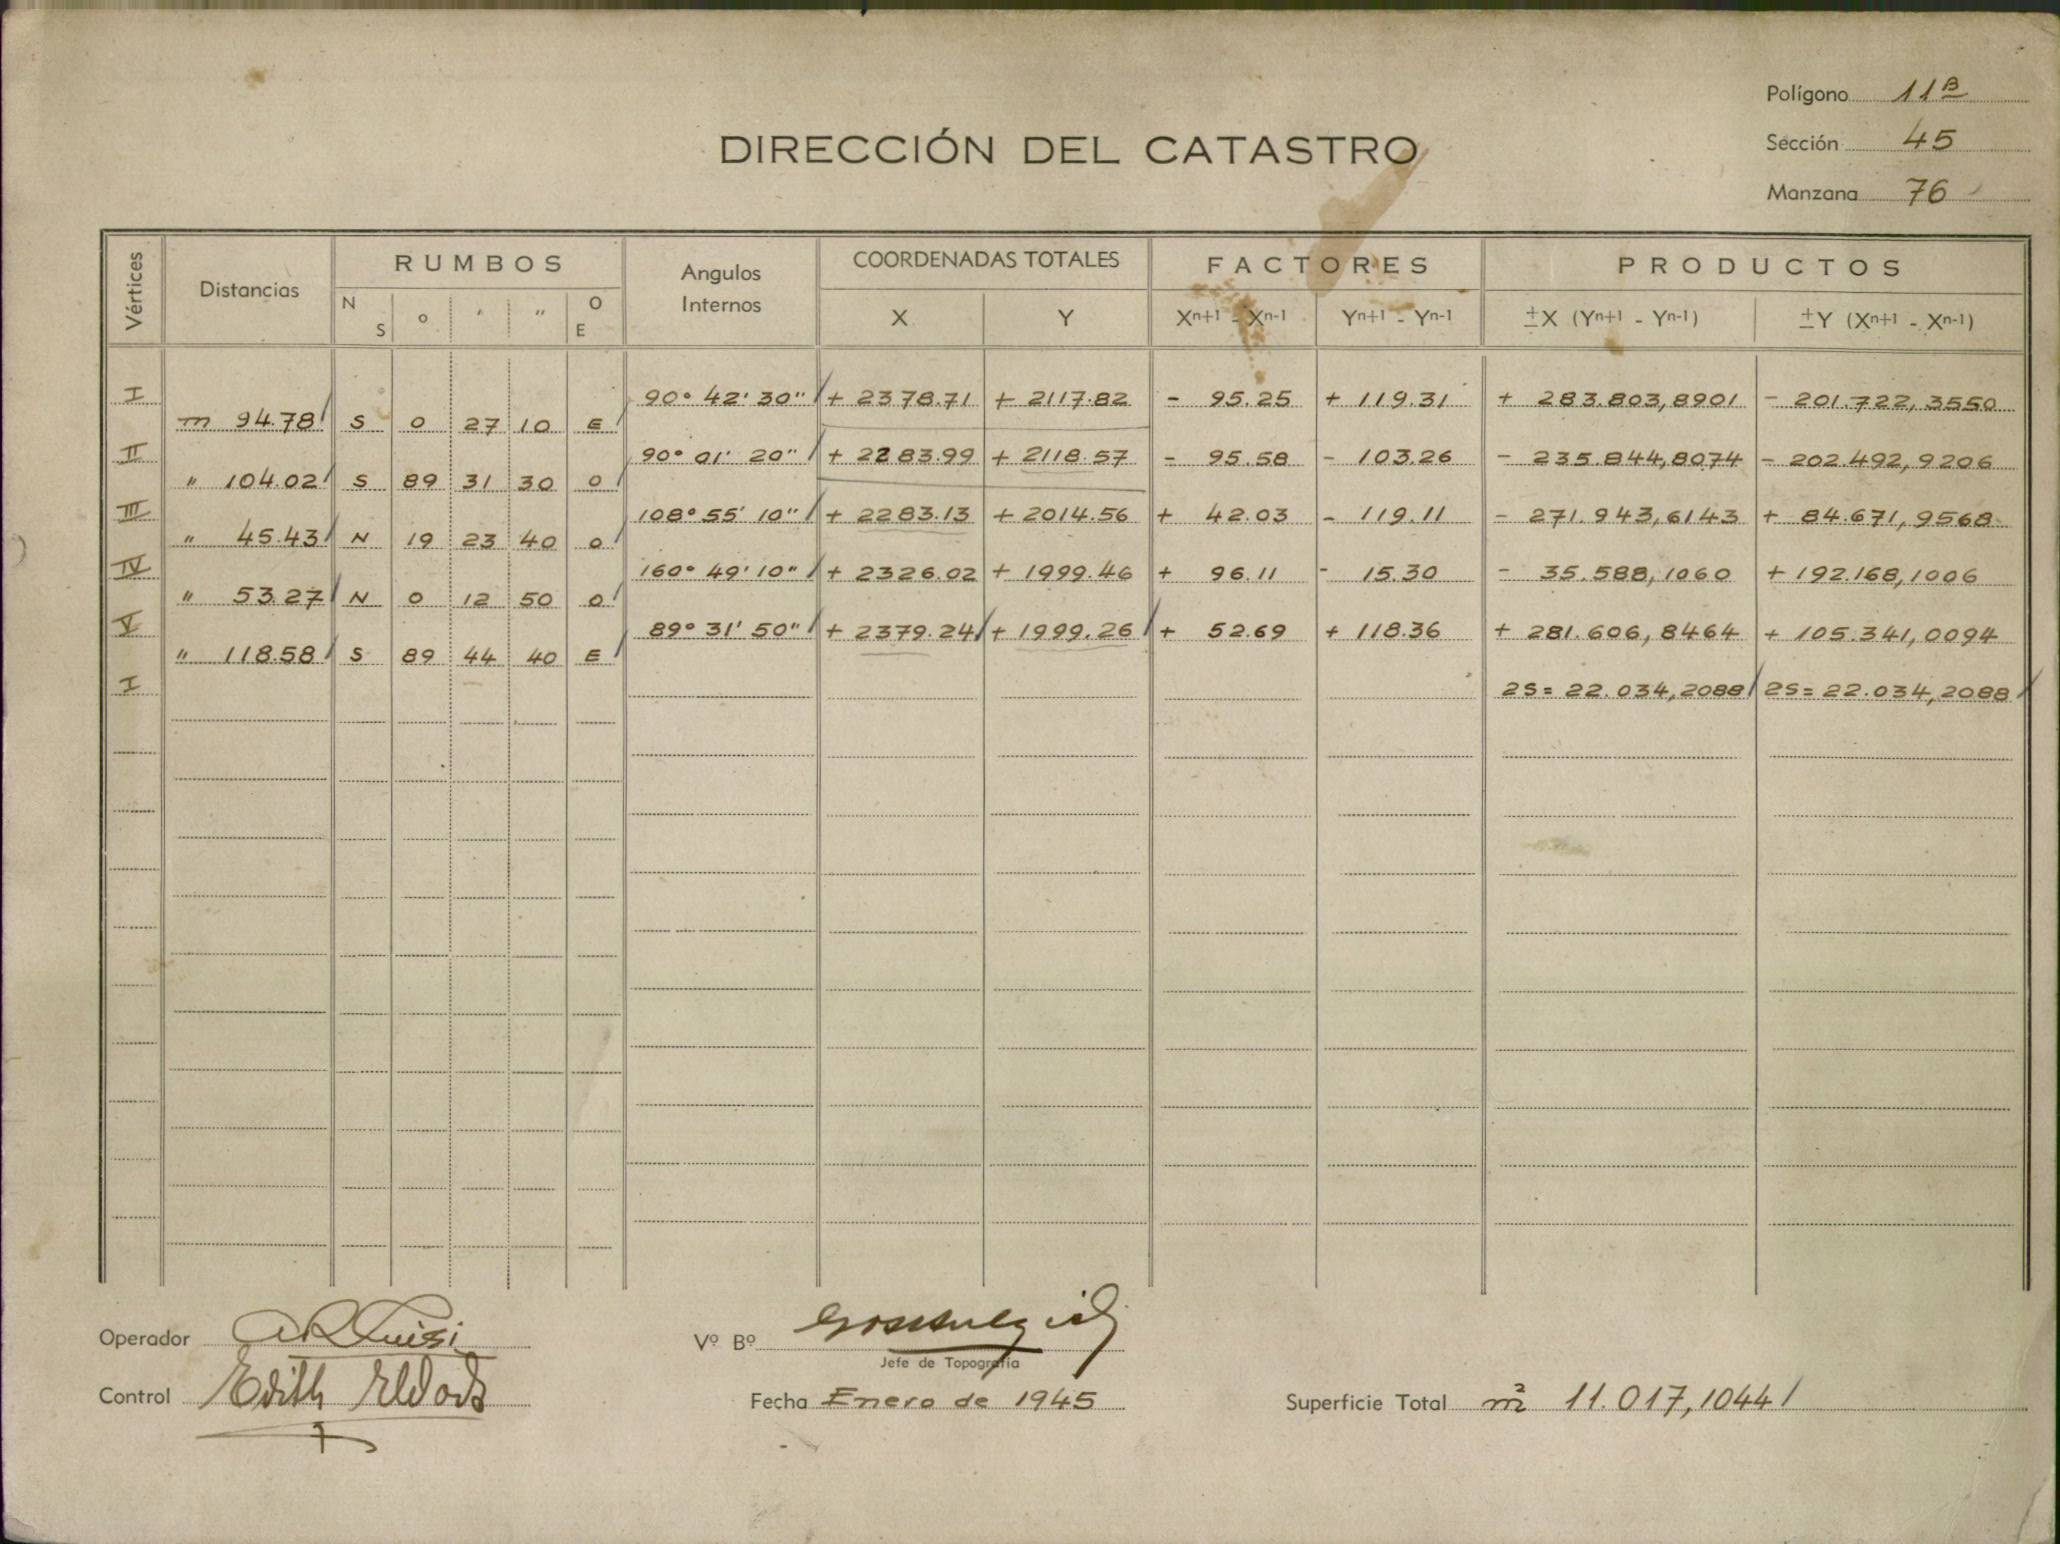 Polígono 11B
DIRECCIÓN DEL CATASTRO
Sección 45
Manzana 76
Vértices Distancias RUMBOS Angulos Internos COORDENADAS TOTALES FACTORES PRODUCTOS
N S o ' '' O E X Y Xn+1 - Xn-1 Yn+1 - Yn-1 ±X (Yn+1 - Yn-1) ±Y (Xn+1 - Xn-1)
I 90° 42' 30" + 2378.71 + 2117.82 - 95.25 + 119.31 + 283.803,8901 - 201.722,3550
m 94.78 S 0 27 10 E
II 90° 01' 20" + 2283.99 + 2118.57 - 95.58 - 103.26 - 235.844,8074 - 202.492,9206
" 104.02 S 89 31 30 O
III 108° 55' 10" + 2283.13 + 2014.56 + 42.03 - 119.11 - 271.943,6143 + 84.671,9568
" 45.43 N 19 23 40 O
IV 160° 49' 10" + 2326.02 + 1999.46 + 96.11 - 15.30 - 35.588,1060 + 192.168,1006
" 53.27 N 0 12 50 O
V 89° 31' 50" + 2379.24 + 1999.26 + 52.69 + 118.36 + 281.606,8464 + 105.341,0094
" 118.58 S 89 44 40 E
I 2S = 22.034,2088 2S = 22.034,2088
Operador
Vº Bº
Jefe de Topografía
Control Edith
Fecha Enero de 1945
Superficie Total m2 11.017,1044